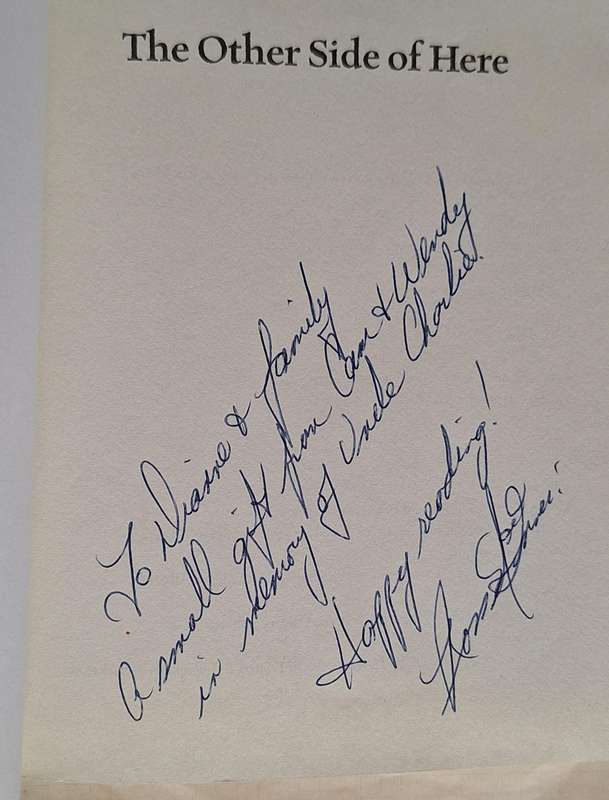 The Other Side of Here
To Dianne & family
A small gift from Cam & Wendy
in memory of Uncle Charlie.
Happy reading!